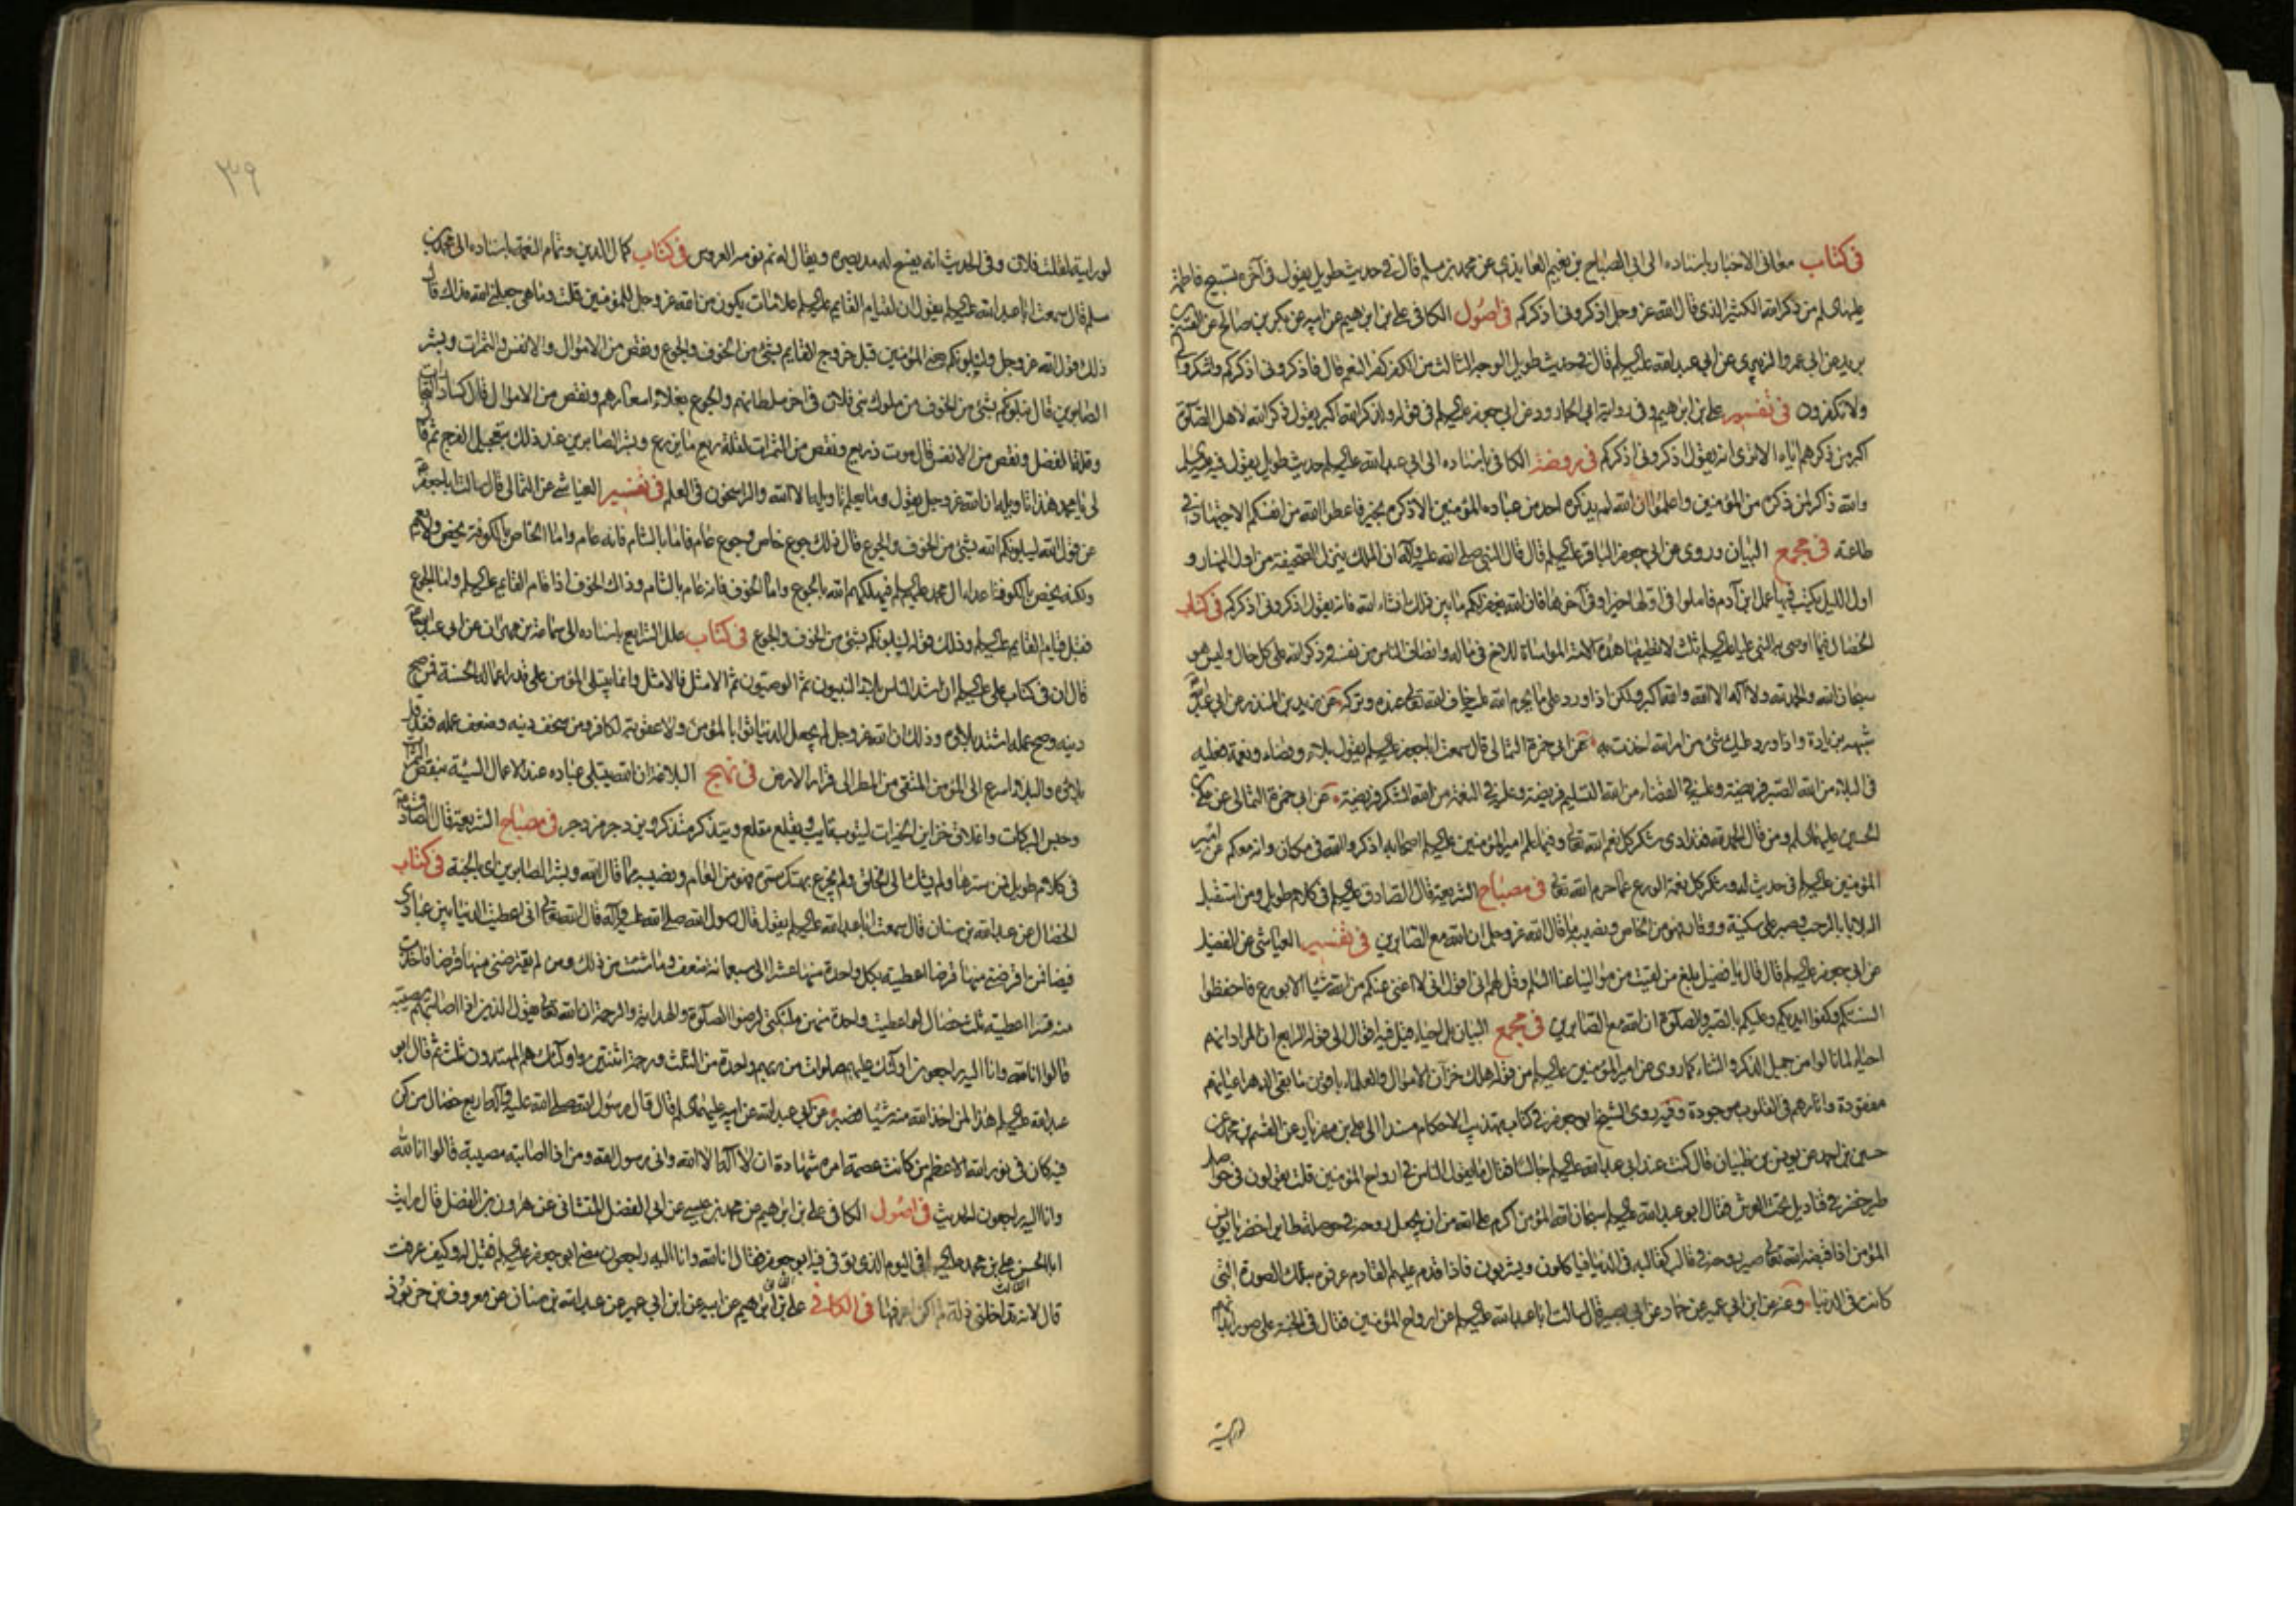 في كتاب معاني الاخبار باسناده الى ابي الصباح بن نعيم العايذي عن محمد بن مسلم قال في حديث طويل يقول في آخره تسبيح فاطمة
عليها السلم من ذكر الله الكثير الذي قال الله عز وجل اذكروني اذكركم في اصول الكافي علي بن ابراهيم عن ابيه عن بكر بن صالح عن القسم بن
بريد عن ابي عمرو الزبيري عن ابي عبد الله عليه السلم قال في حديث طويل الوجه الثالث من الكفر كفر النعم قال فاذكروني اذكركم واشكروا لي
ولا تكفرون في تفسير علي بن ابراهيم وفي رواية ابي الجارود عن ابي جعفر عليه السلم في قوله ولذكر الله اكبر يقول ذكر الله لاهل الصلوة
اكبر من ذكرهم اياه الا ترى انه يقول اذكروني اذكركم في روضة الكافي باسناده الى ابي عبد الله عليه السلم حديث طويل يقول فيه عليه السلم
والله ذاكر لمن ذكره من المؤمنين واعلموا ان الله لم يذكره احد من عباده المؤمنين الا ذكره بخير فاعطوا الله من انفسكم الاجتهاد في
طاعته في مجمع البيان وروي عن ابي جعفر الباقر عليه السلم قال قال النبي صلى الله عليه وآله ان الملك ينزل الصحيفة من اول النهار و
اول الليل يكتب فيها عمل ابن آدم فاملوا في اولها خيرا وفي آخرها فان الله يغفر لكم ما بين ذلك انشاء الله فانه يقول اذكروني اذكركم في كتاب
الخصال فيما اوصى به النبي عليا عليه السلم ثلث لا تطيقها هذه الامة المواساة للاخ في ماله وانصاف الناس من نفسه وذكر الله على كل حال وليس هو
سبحان الله والحمد لله ولا اله الا الله والله اكبر ولكن اذا ورد على ما يحرم الله عليه خاف الله تعالى عنده وتركه عن زيد بن المنذر عن ابي عبد الله
شبهه بزيادة واذا ورد عليك شئ من امر الله اخذت به عن ابي حمزة الثمالي قال سمعت ابا جعفر عليه السلم يقول بلاء وقضاء ونعمة فعليه
في البلاء من الله الصبر فريضة وعليه في القضاء من الله التسليم فريضة وعليه في النعمة من الله الشكر فريضة عن ابي حمزة الثمالي عن علي بن
الحسين عليهما السلم ومن قال الحمد لله فقد ادى شكر كل نعم الله تعالى وفيما علم امير المؤمنين عليه السلم اصحابه اذكروا الله في كل مكان فانه معكم عن امير
المؤمنين عليه السلم في حديث له وشكر كل نعمة الورع عما حرم الله تعالى في مصباح الشريعة قال الصادق عليه السلم في كلام طويل ومن استقبل
البلايا بالرحب وصبر على سكينة ووقار فهو من الخاص ونصيبه ما قال الله عز وجل ان الله مع الصابرين في تفسير العياشي عن الفضيل
عن ابي جعفر عليه السلم قال قال يا فضيل بلغ من لقيت من موالينا عنا السلم وقل لهم اني اقول اني لا اغني عنكم من الله شيئا الا بورع فاحفظوا
السنتكم وكفوا ايديكم وعليكم بالصبر والصلوة ان الله مع الصابرين في مجمع البيان بل احياء قيل فيه اقوال الى قوله الرابع ان المراد انهم
احياء لما نالوا من جميل الذكر والثناء كما روي عن امير المؤمنين عليه السلم من قوله هلك خزان الاموال والعلماء باقون ما بقي الدهر اعيانهم
مفقودة وآثارهم في القلوب موجودة وفيه روى الشيخ ابو جعفر في كتاب تهذيب الاحكام مسندا الى علي بن مهزيار عن القسم بن محمد عن
حسين بن احمد عن يونس بن ظبيان قال كنت عند ابي عبد الله عليه السلم جالسا فقال ما يقول الناس في ارواح المؤمنين قلت يقولون في حواصل
طير خضر في قناديل تحت العرش فقال ابو عبد الله عليه السلم سبحان الله المؤمن اكرم على الله من ان يجعل روحه في حوصلة طاير اخضر يا يونس
المؤمن اذا قبضه الله تعالى صير روحه في قالب كقالبه في الدنيا فيأكلون ويشربون فاذا قدم عليهم القادم عرفوه بتلك الصورة التي
كانت في الدنيا وعنه عن ابن ابي عمير عن حماد عن ابي بصير قال سالت ابا عبد الله عليه السلم عن ارواح المؤمنين فقال في الجنة على صور ابدانهم
لو رايته
٣٩
لو رايته لقلت فلان وفي الحديث انه يفسح له مد بصره ويقال له نم نومة العروس في كتاب كمال الدين وتمام النعمة باسناده الى محمد بن
مسلم قال سمعت ابا عبد الله عليه السلم يقول ان لقيام القايم عليه السلم علامات يكون من الله عز وجل للمؤمنين قلت وما هي جعلني الله فداك قال
ذلك قول الله عز وجل ولنبلونكم يعني المؤمنين قبل خروج القايم بشئ من الخوف والجوع ونقص من الاموال والانفس والثمرات وبشر
الصابرين قال نبلونكم بشئ من الخوف من ملوك بني فلان في آخر سلطانهم والجوع بغلاء اسعارهم ونقص من الاموال قال كساد التجارات
وقلة الفضل ونقص من الانفس قال موت ذريع ونقص من الثمرات لقلة ريع ما يزرع وبشر الصابرين عند ذلك بتعجيل الفرج ثم قال
لي يا محمد هذا تاويله ان الله عز وجل يقول وما يعلم تاويله الا الله والراسخون في العلم في تفسير العياشي عن الثمالي قال سالت ابا جعفر
عن قول الله ليبلونكم الله بشئ من الخوف والجوع قال ذلك جوع خاص وجوع عام فاما بالشام فانه عام واما الخاص بالكوفة يخص ولا يعم
ولكنه يخص بالكوفة اعداء ال محمد عليهم السلم فيهلكهم الله بالجوع واما الخوف فانه عام بالشام وذاك الخوف اذا قام القايم عليه السلم واما الجوع
فقبل قيام القايم عليه السلم وذلك قوله لنبلونكم بشئ من الخوف والجوع في كتاب علل الشرايع باسناده الى سماعة بن مهران عن ابي عبد الله
قال ان في كتاب علي عليه السلم ان اشد الناس بلاء النبيون ثم الوصيون ثم الامثل فالامثل وانما يبتلى المؤمن على قدر اعماله الحسنة فمن صح
دينه وصح عمله اشتد بلاؤه وذلك ان الله عز وجل لم يجعل الدنيا ثوابا لمؤمن ولا عقوبة لكافر ومن سخف دينه وضعف عمله فقد قل
بلاؤه والبلاء اسرع الى المؤمن المتقي من المطر الى قرار الارض في نهج البلاغة ان الله يبتلي عباده عند الاعمال السيئة بنقص الثمرات
وحبس البركات واغلاق خزاين الخيرات ليتوب تايب ويقلع مقلع ويتذكر متذكر ويزدجر مزدجر في مصباح الشريعة قال الصادق
في كلام طويل فمن سترها ولم يشك الى الخلق ولم يجزع بهتك ستره فهو من العام ونصيبه مما قال الله وبشر الصابرين اي بالجنة في كتاب
الخصال عن عبد الله بن سنان قال سمعت ابا عبد الله عليه السلم يقول قال رسول الله صلى الله عليه وآله قال الله تعالى اني اعطيت الدنيا بين عبادي
فيضا فمن اقرضني منها قرضا اعطيته بكل واحدة منها عشرا الى سبعمائة ضعف وما شئت من ذلك ومن لم يقرضني منها قرضا فاخذت
منه قسرا اعطيته ثلث خصال لو اعطيت واحدة منهن ملئكتي لرضوا الصلوة والهداية والرحمة ان الله تعالى يقول الذين اذا اصابتهم مصيبة
قالوا انا لله وانا اليه راجعون اولئك عليهم صلوات من ربهم واحدة من الثلث ورحمة اثنتين واولئك هم المهتدون ثلث ثم قال ابو
عبد الله عليه السلم هذا لمن اخذ الله منه شيئا فصبر عن ابي عبد الله عن ابيه عليهما السلم قال قال رسول الله صلى الله عليه وآله اربع خصال من كن
فيه كان في نور الله الاعظم من كانت عصمة امره شهادة ان لا اله الا الله واني رسول الله ومن اذا اصابته مصيبة قالوا انا لله
وانا اليه راجعون الحديث في اصول الكافي علي بن ابراهيم عن محمد بن عيسى عن ابي الفضل عن هرون بن الفضل قال رايت
ابا الحسن علي بن محمد عليه السلم في اليوم الذي توفي فيه ابو جعفر فقال انا لله وانا اليه راجعون مضى ابو جعفر عليه السلم فقيل له وكيف عرفت
قال لانه تداخلني ذلة لم اكن اعرفها في الكافي علي بن ابراهيم عن ابيه عن ابن ابي عمير عن عبد الله بن سنان عن معروف بن خربوذ